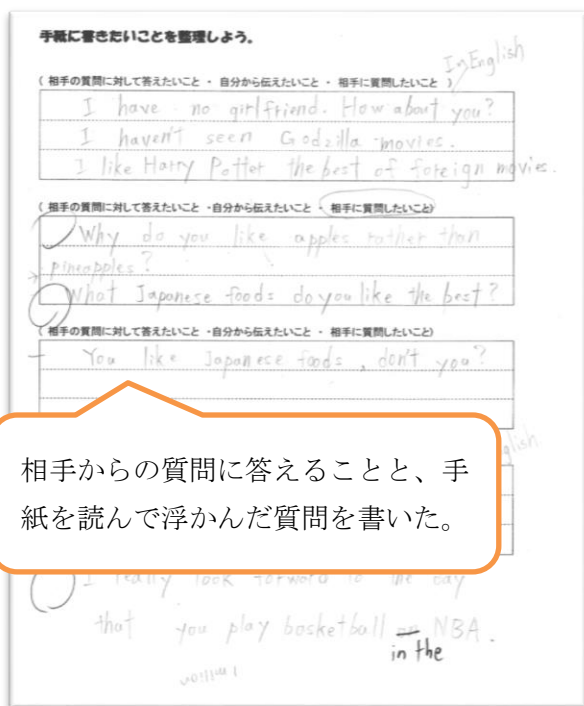 手紙に書きたいことを整理しよう。
In English
( 相手の質問に対して答えたいこと ・ 自分から伝えたいこと ・ 相手に質問したいこと )
I have no girlfriend. How about you?
I haven't seen Godzilla movies.
I like Harry Potter the best of foreign movies.
( 相手の質問に対して答えたいこと ・自分から伝えたいこと ・ 相手に質問したいこと)
Why do you like apples rather than
pineapples?
What Japanese foods do you like the best?
( 相手の質問に対して答えたいこと ・自分から伝えたいこと ・ 相手に質問したいこと)
You like Japanese foods, don't you?
相手からの質問に答えることと、手
紙を読んで浮かんだ質問を書いた。
glish
I really look forward to the day
that you play basketball on NBA.
in the